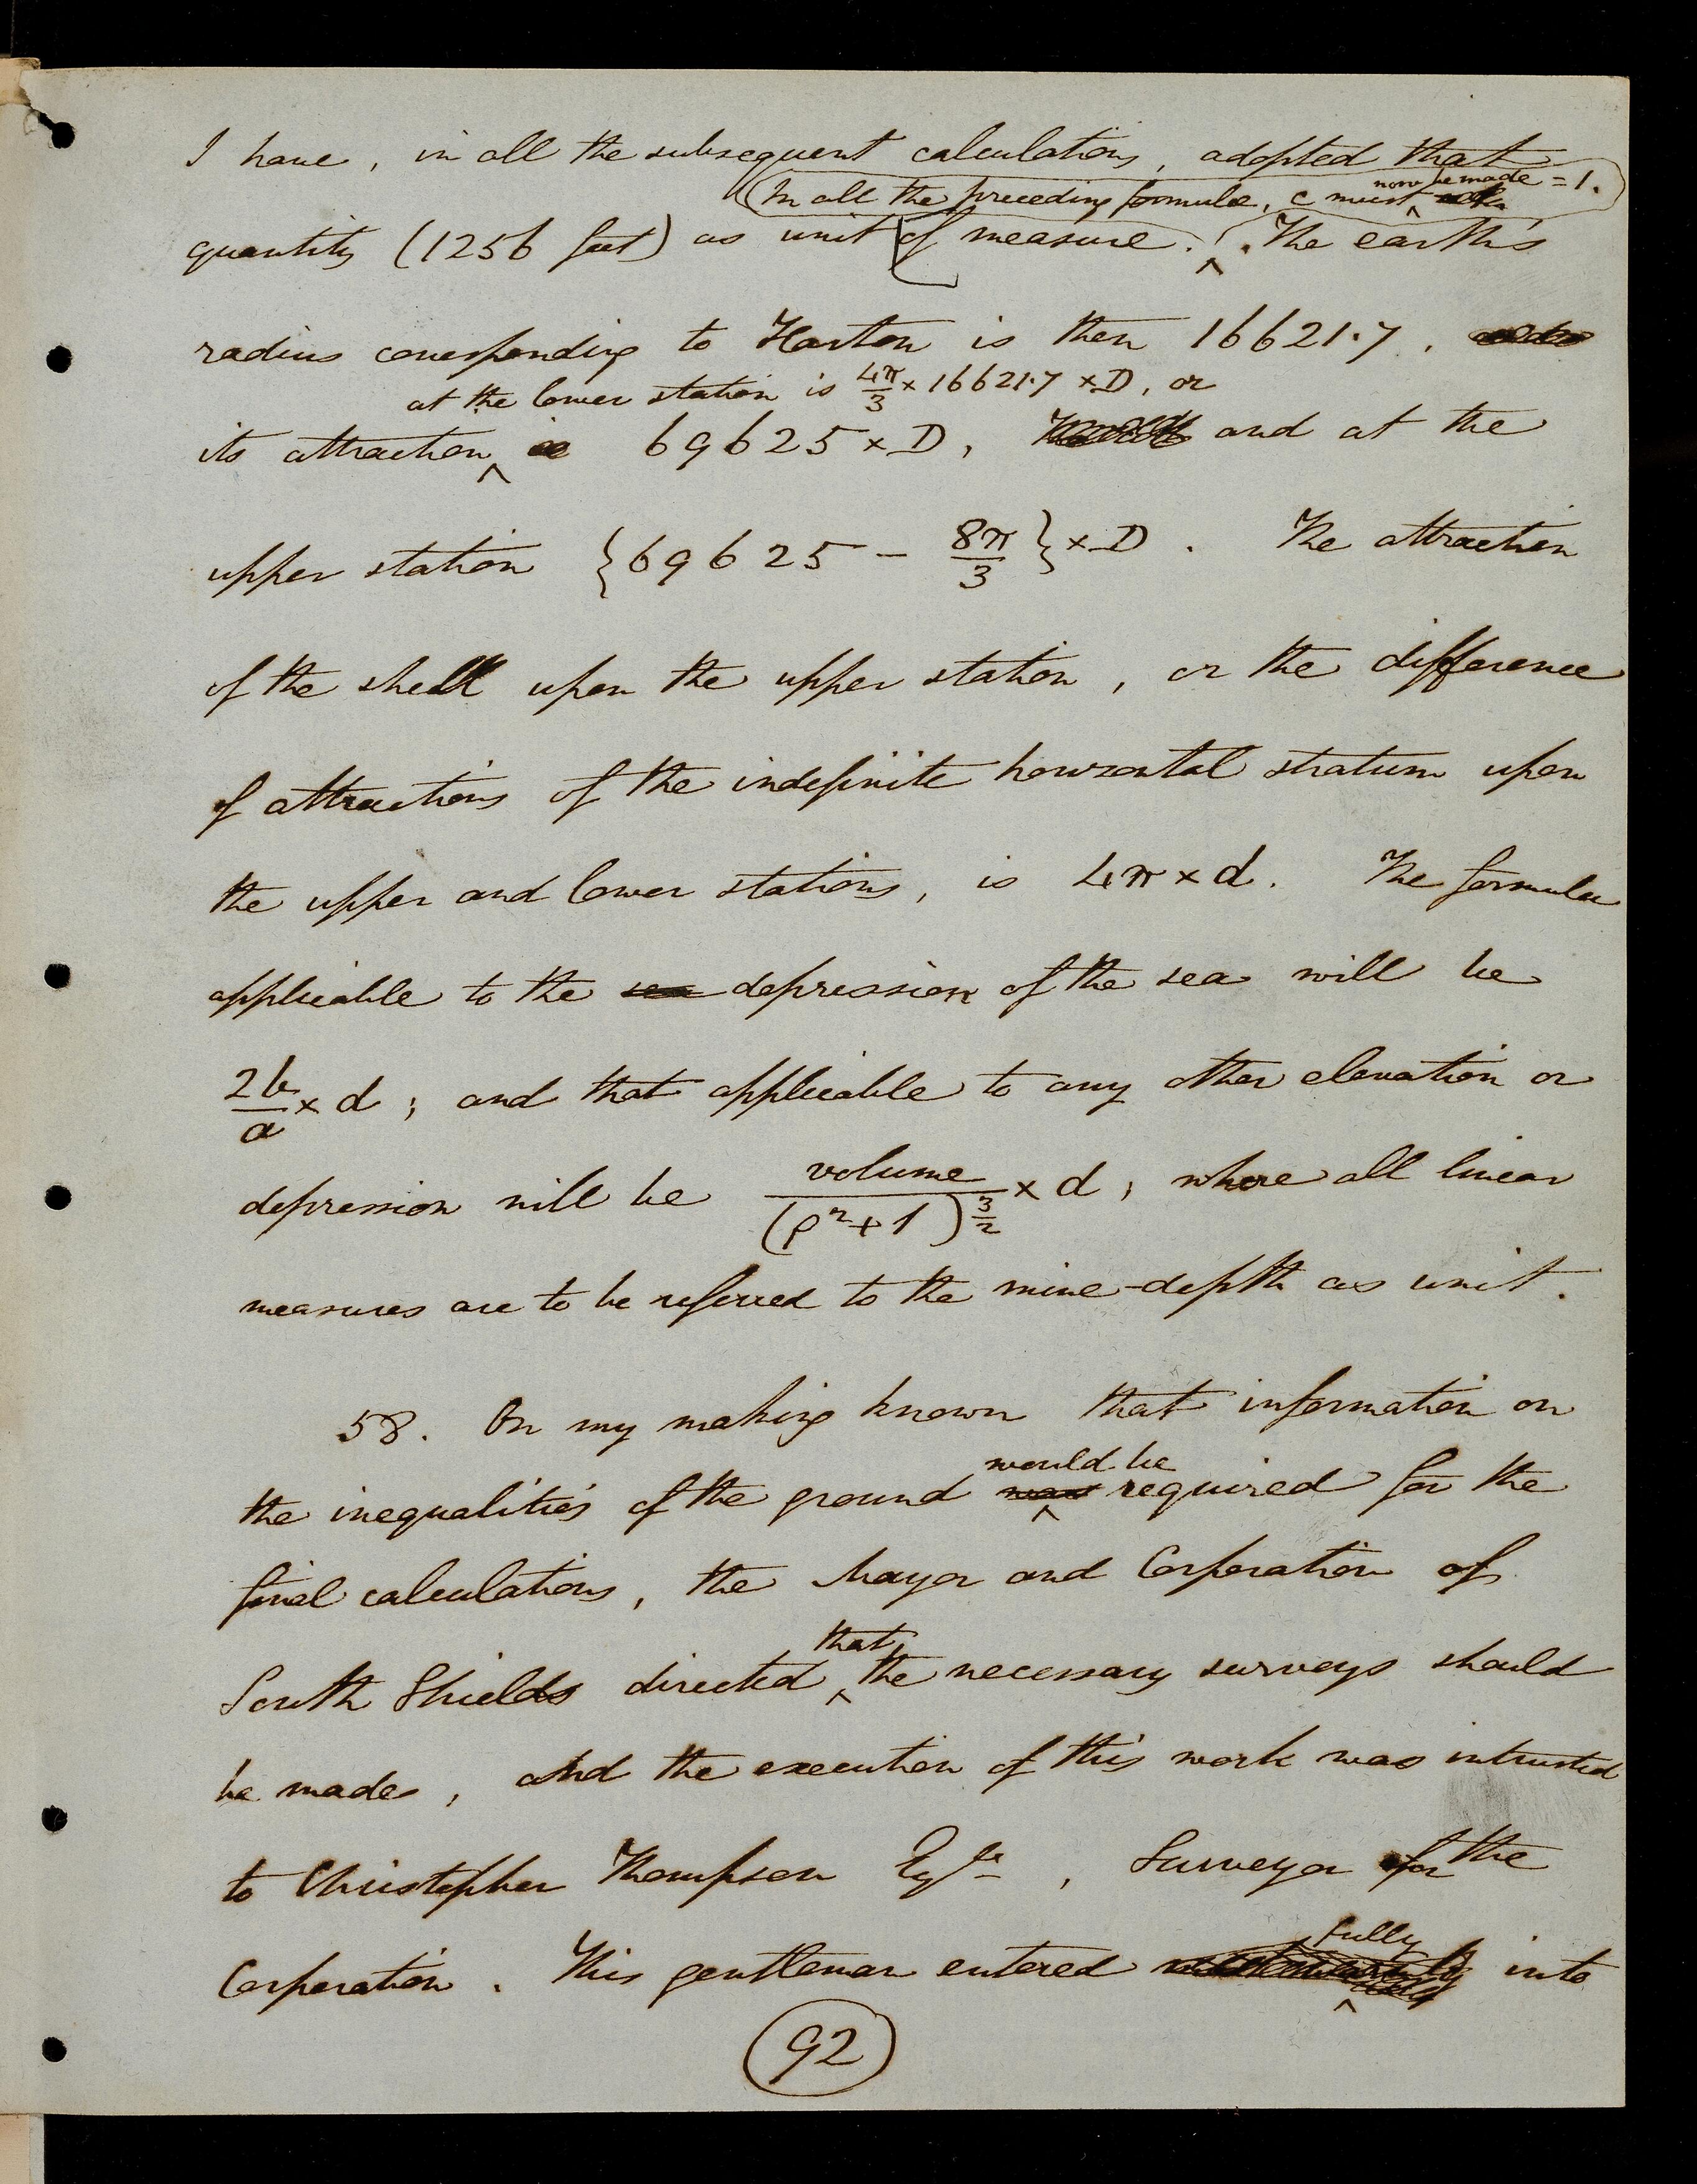 I have, in all the subsequent calculations, adopted that
In all the preceding formulæ, c must now be made = 1.
quantity (1256 feet) as unit of measure. The earth's
radius corresponding to Harton is then 16621.7,
at the lower station is 4π/3 × 16621.7 × D, or
its attraction 69625 × D, and at the
upper station {69625 − 8π/3} × D. The attraction
of the shell upon the upper station, or the difference
of attractions of the indefinite horizontal stratum upon
the upper and lower stations, is 4π × d. The formula
applicable to the sea depression of the sea will be
2b/a × d; and that applicable to any other elevation or
depression will be volume/(ρ²+1)^(3/2) × d, where all linear
measures are to be referred to the mine-depth as unit.
58. On my making known that information on
would be
the inequalities of the ground was required for the
final calculations, the Mayor and Corporation of
that
South Shields directed the necessary surveys should
be made, and the execution of this work was intrusted
to Christopher Thompson Esqre, Surveyor for the
fully
Corporation. This gentleman entered into
92